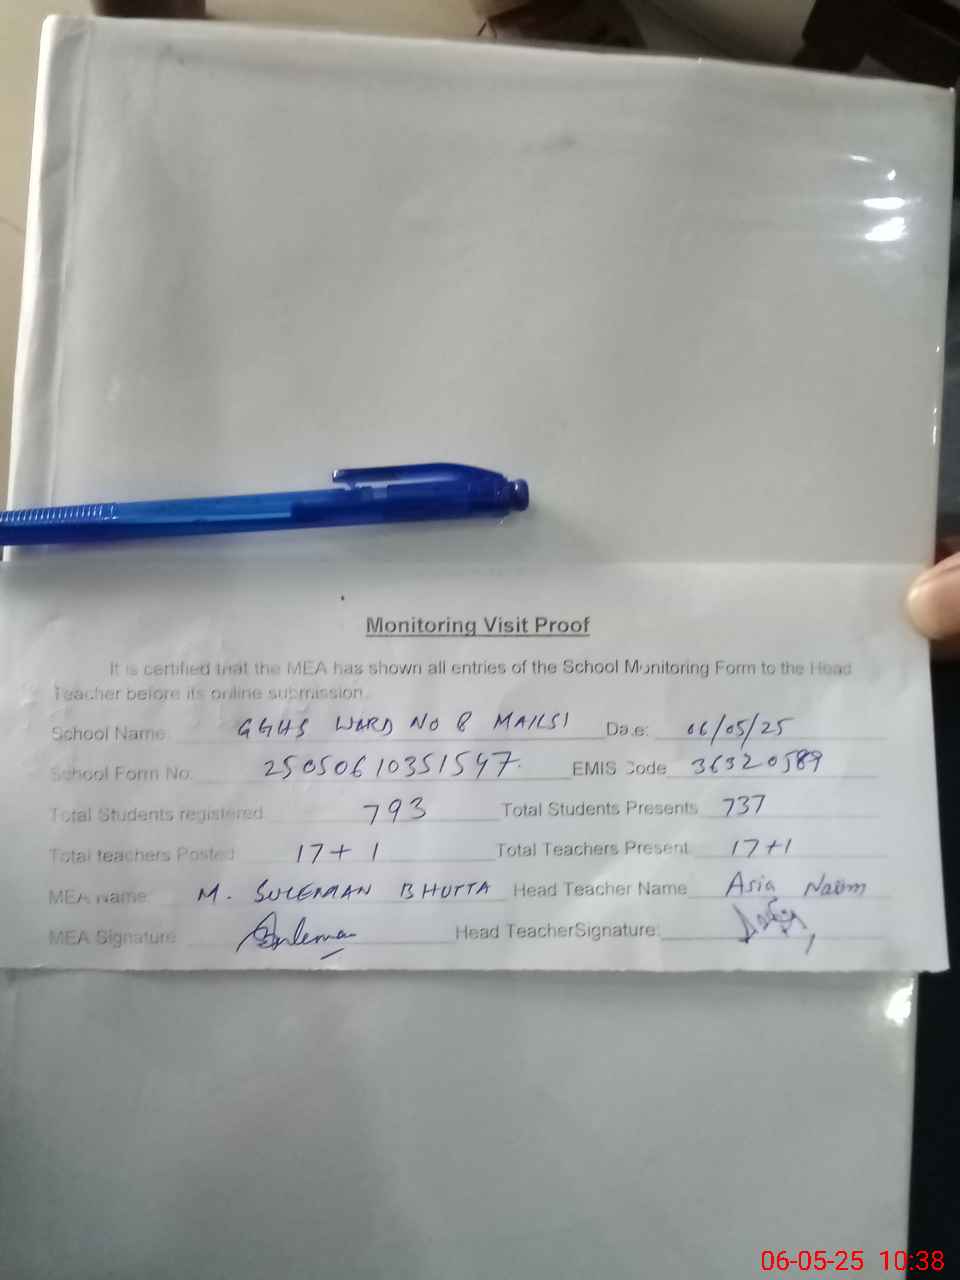 Monitoring Visit Proof
It is certified that the MEA has shown all entries of the School Monitoring Form to the Head
Teacher before its online submission.
School Name: GGHS WARD No 8 MAILSI Date: 06/05/25
School Form No: 25050610351547 EMIS Code 36320589
Total Students registered 793 Total Students Presents 737
Total teachers Posted 17+1 Total Teachers Present 17+1
MEA Name: M. SULEMAN BHUTTA Head Teacher Name Asia Naeem
MEA Signature Suleman Head TeacherSignature:
06-05-25 10:38